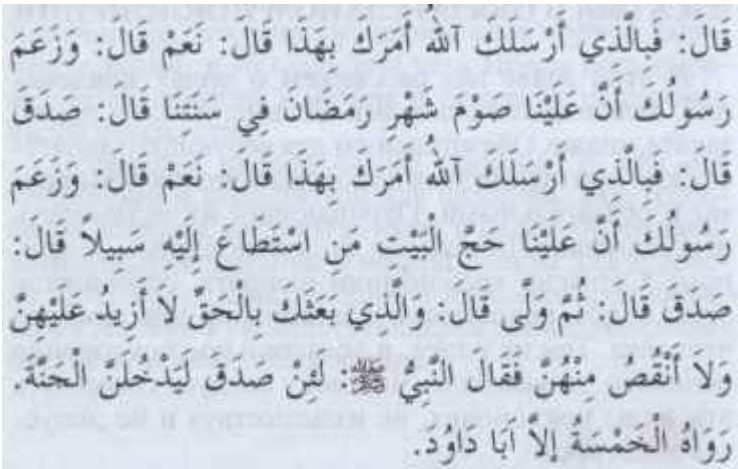 قَالَ: فَبِالَّذِي أَرْسَلَكَ آللهُ أَمَرَكَ بِهَذَا قَالَ: نَعَمْ قَالَ: وَزَعَمَ
رَسُولُكَ أَنَّ عَلَيْنَا صَوْمَ شَهْرِ رَمَضَانَ فِي سَنَتِنَا قَالَ: صَدَقَ
قَالَ: فَبِالَّذِي أَرْسَلَكَ آللهُ أَمَرَكَ بِهَذَا قَالَ: نَعَمْ قَالَ: وَزَعَمَ
رَسُولُكَ أَنَّ عَلَيْنَا حَجَّ الْبَيْتِ مَنِ اسْتَطَاعَ إِلَيْهِ سَبِيلاً قَالَ:
صَدَقَ قَالَ: ثُمَّ وَلَّى قَالَ: وَالَّذِي بَعَثَكَ بِالْحَقِّ لاَ أَزِيدُ عَلَيْهِنَّ
وَلاَ أَنْقُصُ مِنْهُنَّ فَقَالَ النَّبِيُّ ﷺ: لَئِنْ صَدَقَ لَيَدْخُلَنَّ الْجَنَّةَ.
رَوَاهُ الْخَمْسَةُ إِلاَّ أَبَا دَاوُدَ.